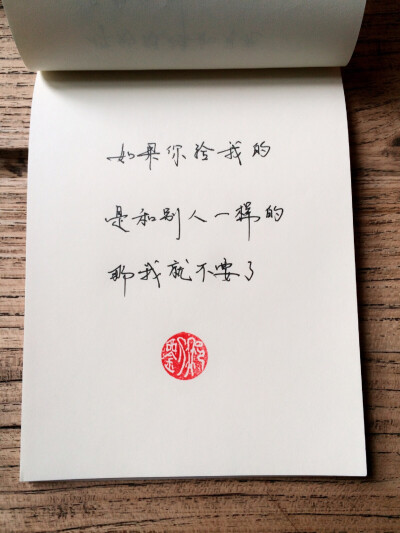 如果你给我的
是和别人一样的
那我就不要了